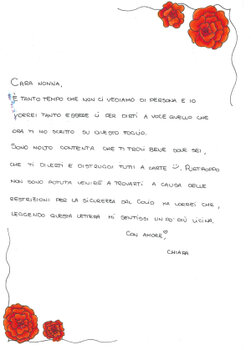 CARA NONNA,
È TANTO TEMPO CHE NON CI VEDIAMO DI PERSONA E IO
VORREI TANTO ESSERE LÌ PER DIRTI A VOCE QUELLO CHE
ORA TI HO SCRITTO SU QUESTO FOGLIO.
SONO MOLTO CONTENTA CHE TI TROVI BENE DOVE SEI,
CHE TI DIVERTI E DISTRUGGI TUTTI A CARTE. PURTROPPO
NON SONO POTUTA VENIRE A TROVARTI A CAUSA DELLE
RESTRIZIONI PER LA SICUREZZA DAL COVID MA VORREI CHE,
LEGGENDO QUESTA LETTERA MI SENTISSI UN PO' PIÙ VICINA.
CON AMORE,
CHIARA